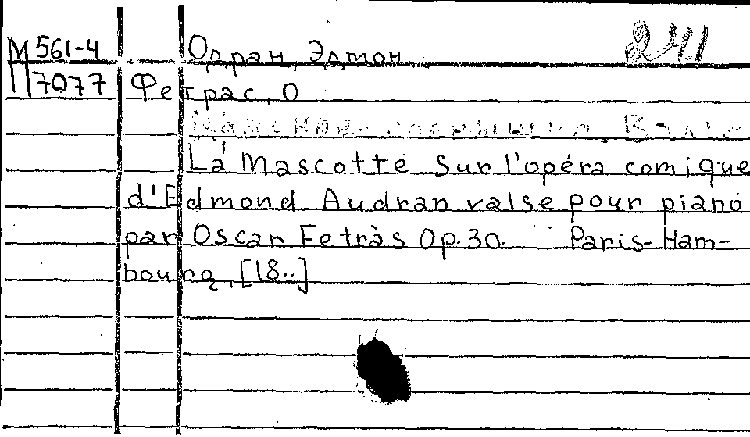 М 561-4 Одран, Эдмон 241
П 7077 Фетрас, О
La Mascotte Sur l'opéra comique
d'Edmond Audran valse pour piano
par Oscar Fetràs Op. 30. Paris-Ham-
bourg, [18..]